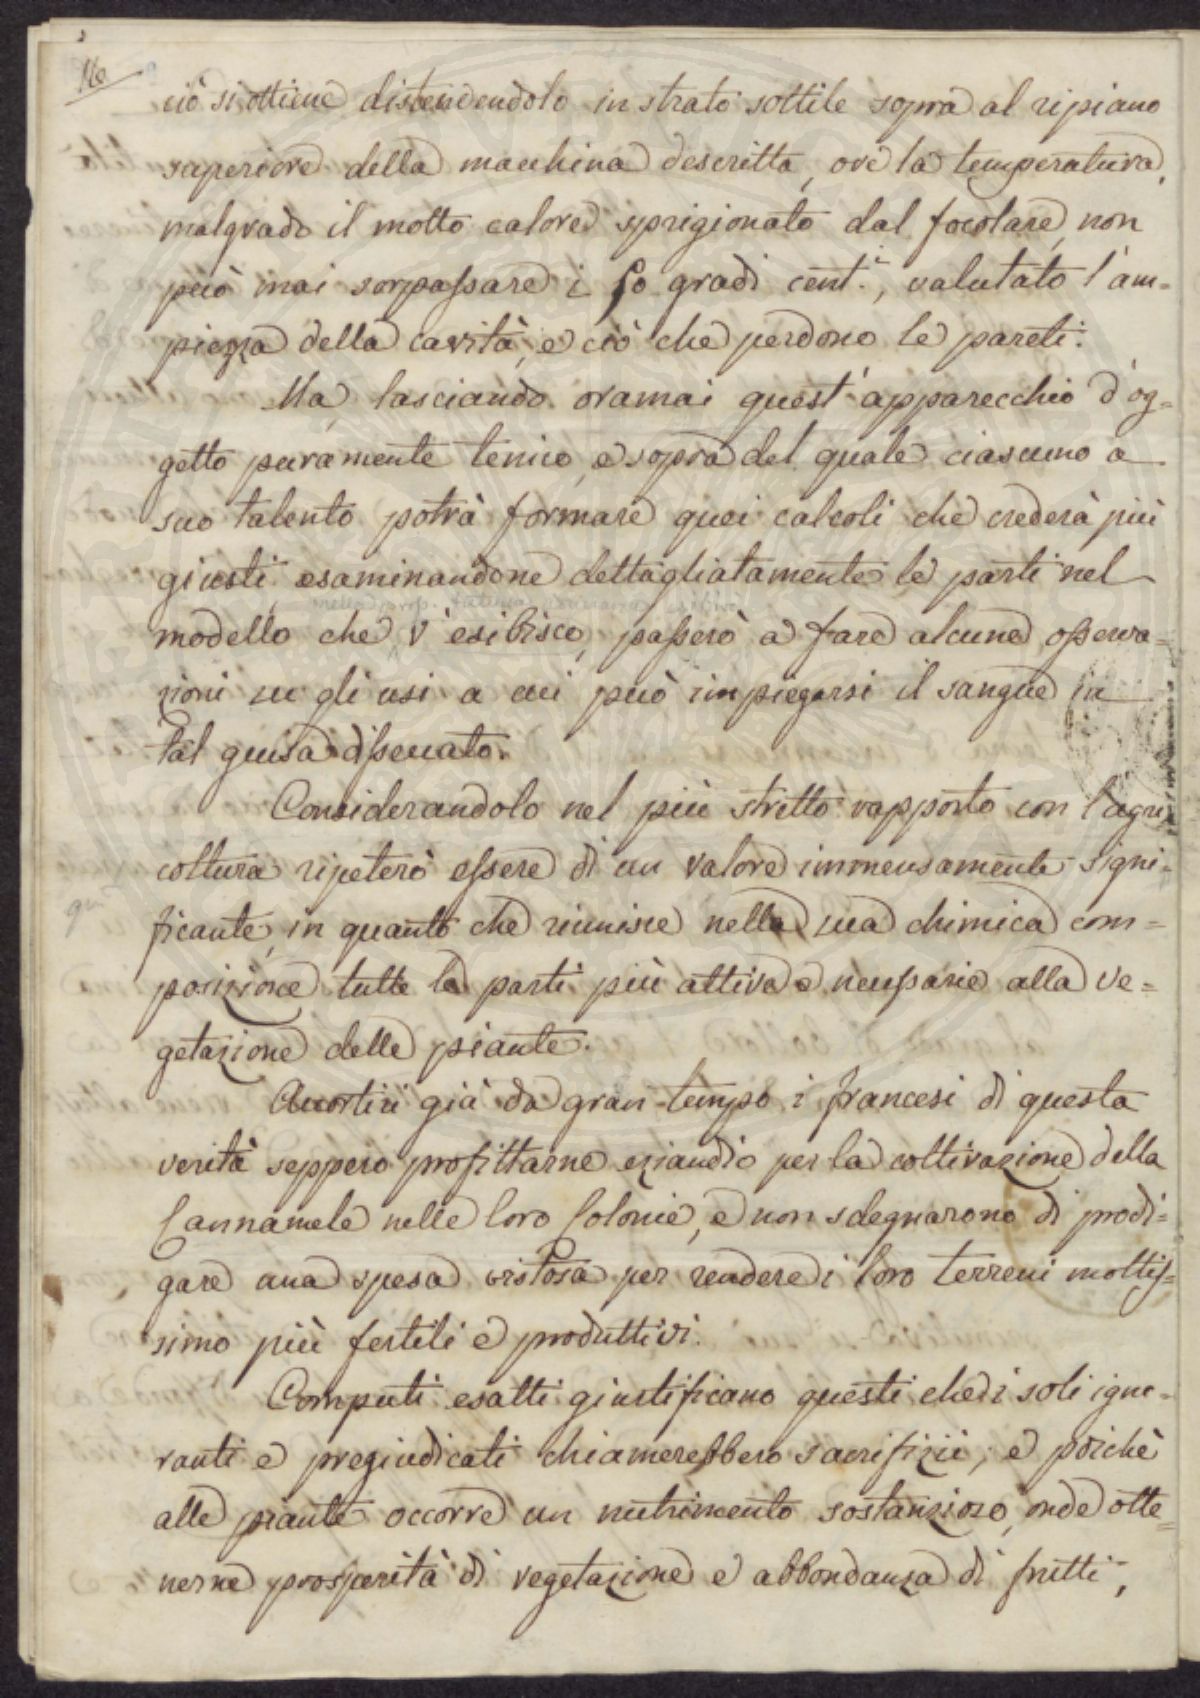 16
ciò si ottiene distendendolo in strato sottile sopra al ripiano
superiore della macchina descritta, ove la temperatura,
malgrado il molto calore sprigionato dal focolare, non
può mai sorpassare i 50 gradi cent.i, valutato l'am=
piezza della cavità, e ciò che perdono le pareti.
Ma, lasciando oramai quest'apparecchio d'og=
getto puramente tenico, e sopra del quale ciascuno a
suo talento potrà formare quei calcoli che crederà più
giusti esaminandone dettagliatamente le parti nel
modello che v'esibisco, passerò a fare alcune osserva=
zioni su gli usi a cui può impiegarsi il sangue in
tal guisa disseccato.
Considerandolo nel più stretto rapporto con l'agri
coltura ripeterò essere di un valore immensamente signi=
ficante, in quanto che riunisce nella sua chimica com=
posizione tutte le parti più attive e necessarie alla ve=
getazione delle piante.
Accortisi già da gran tempo i francesi di questa
verità seppero profittarne eziandio per la coltivazione della
Cannamele nelle loro Colonie, e non sdegnarono di prodi=
gare una spesa vistosa per rendere i loro terreni moltis=
simo più fertili e produttivi.
Computi esatti giustificano questi che i soli igno=
ranti e pregiudicati chiamerebbero sacrifizii; e poichè
alle piante occorre un nutrimento sostanzioso, onde otte=
nerne prosperità di vegetazione e abbondanza di frutti,